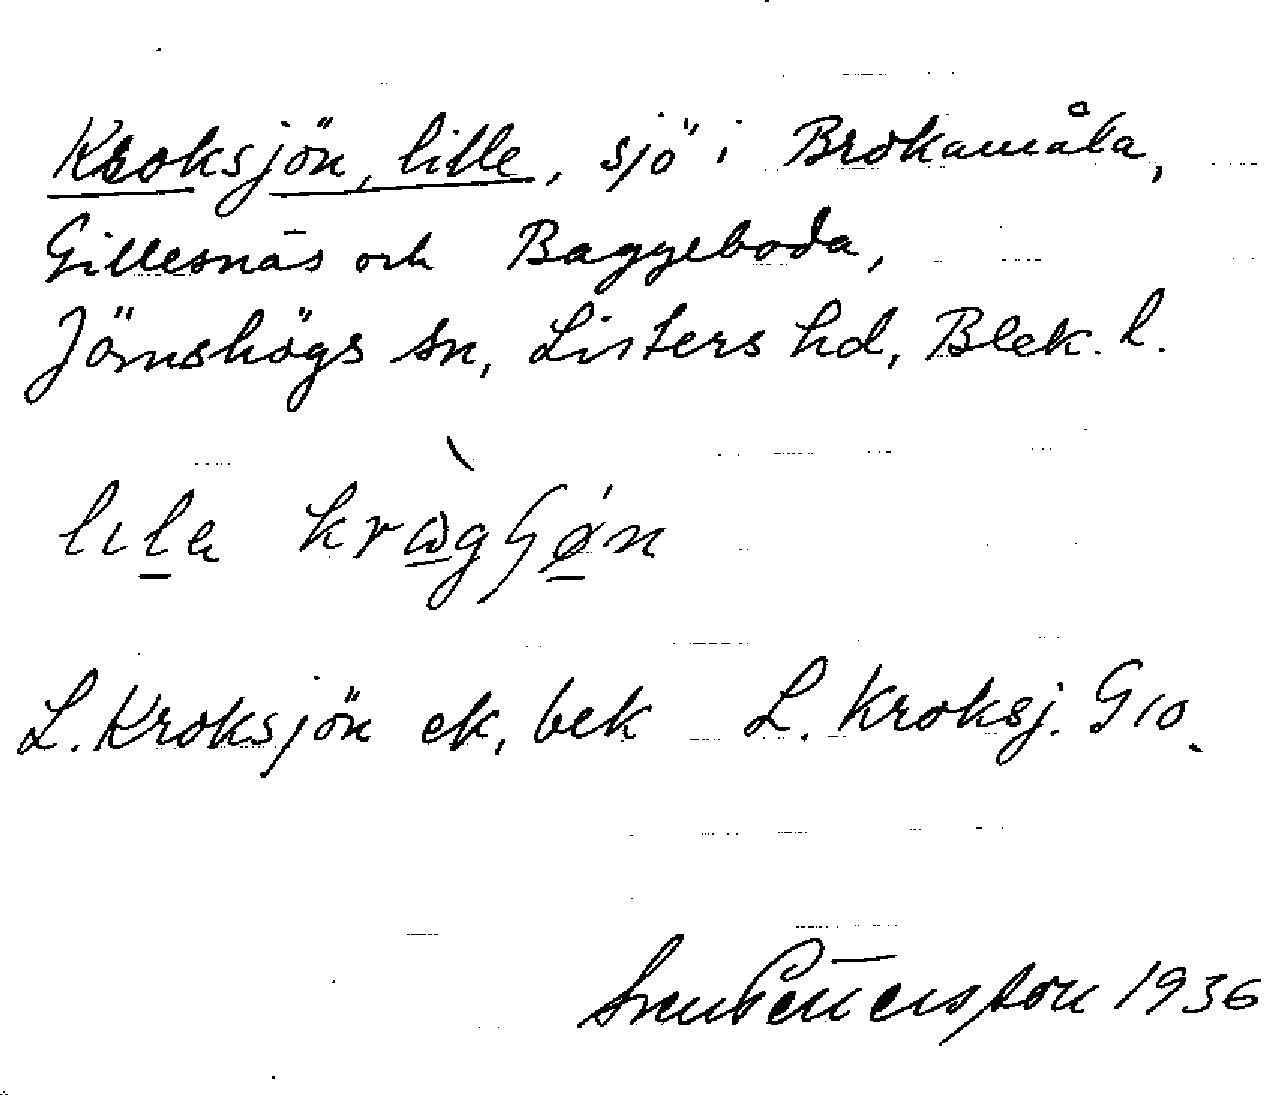 Kroksjön, lille, sjö i Brokamåla,
Gillesnäs och Baggeboda,
Jämshögs sn, Listers hd, Blek. l.
L. Kroksjön ek, bek L. Kroksj. G10.
Sven Pettersson 1936